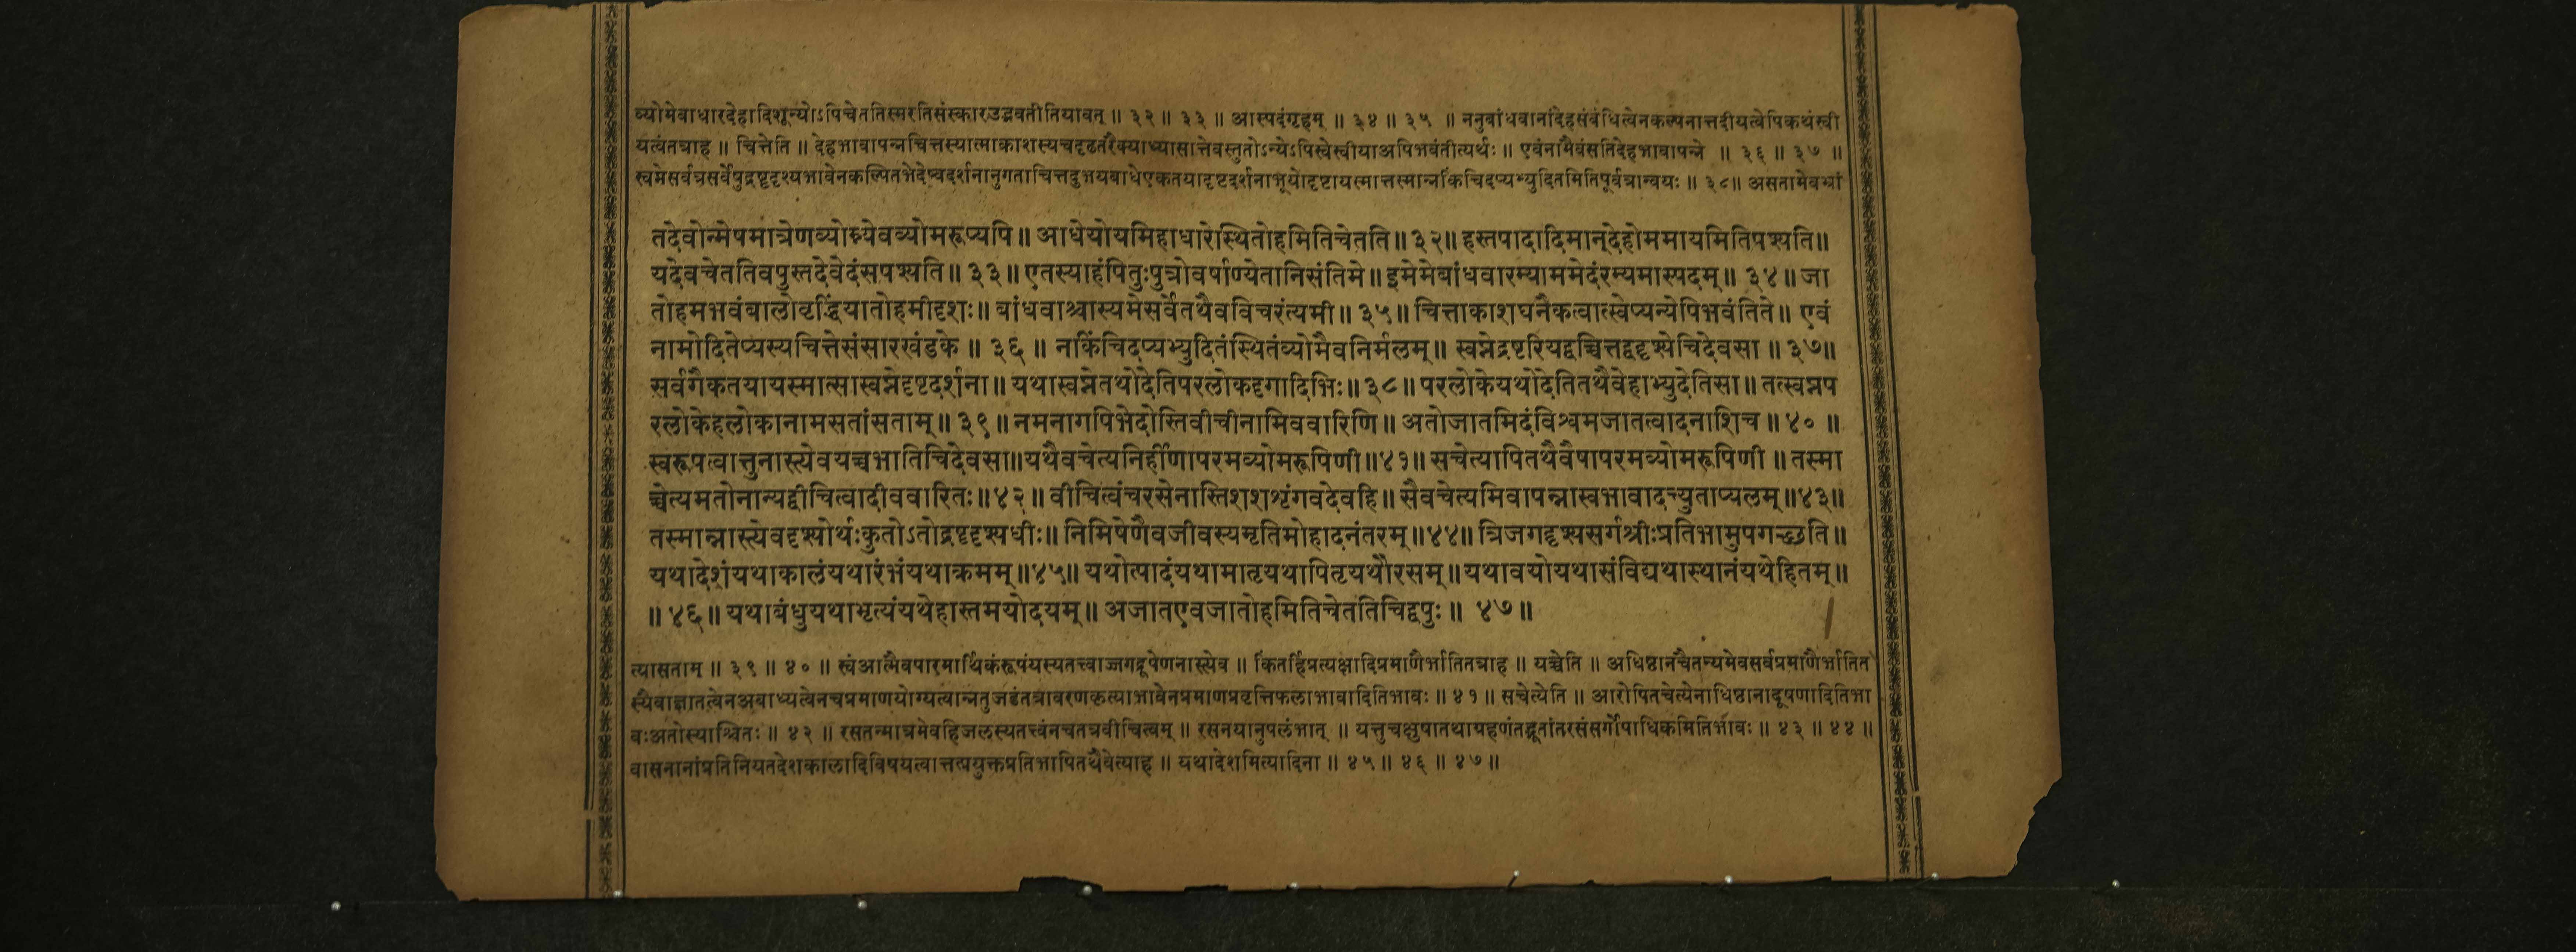 व्योमेवाधारदेहादिशून्योऽपिचेततिस्मरतिसंस्कारउद्भवतीतियावत् ॥ ३२ ॥ ३३ ॥ आस्पदंगृहम् ॥ ३४ ॥ ३५ ॥ ननुबांधवानांदेहसंबंधित्वेनकल्पनात्तदीयत्वेपिकथंस्वी
यत्वंतत्राह ॥ चित्तेति ॥ देहभावापन्नचित्तस्यात्माकाशस्यचदृढतरैक्याध्यासात्तेवस्तुतोऽन्येऽपिस्वेस्वीयाअपिभवंतीत्यर्थः ॥ एवंनामैवंसतिदेहभावापन्ने ॥ ३६ ॥ ३७ ॥
स्वप्नेसर्वत्रसर्वेषुद्रष्टृदृश्यभावेनकल्पितभेदेष्वदर्शनानुगताचित्तदुभयबाधेएकतयादृष्टदर्शनाभूयोदृष्टायस्मात्तस्मान्नकिंचिदप्यभ्युदितमितिपूर्वत्रान्वयः ॥ ३८ ॥ असतामेवभ्रां
तदेवोन्मेषमात्रेणव्योम्न्येवव्योमरूप्यपि ॥ आधेयोयमिहाधारेस्थितोहमितिचेतति ॥ ३२ ॥ हस्तपादादिमान्देहोममायमितिपश्यति ॥
यदेवचेततिवपुस्तदेवेदंसपश्यति ॥ ३३ ॥ एतस्याहंपितुःपुत्रोवर्षाण्येतानिसंतिमे ॥ इमेमेबांधवारम्याममेदंरम्यमास्पदम् ॥ ३४ ॥ जा
तोहमभवंबालोवृद्धिंयातोहमीदृशः ॥ बांधवाश्चास्यमेसर्वेतथैवविचरंत्यमी ॥ ३५ ॥ चित्ताकाशघनैकत्वात्स्वेप्यन्येपिभवंतिते ॥ एवं
नामोदितेप्यस्यचित्तेसंसारखंडके ॥ ३६ ॥ नकिंचिदप्यभ्युदितंस्थितंव्योमैवनिर्मलम् ॥ स्वप्नेद्रष्टरियद्वच्चित्तद्वद्दृश्येचिदेवसा ॥ ३७ ॥
सर्वगैकतयायस्मात्सास्वप्नेदृष्टदर्शना ॥ यथास्वप्नेतथोदेतिपरलोकदृगादिभिः ॥ ३८ ॥ परलोकेयथोदेतितथैवेहाभ्युदेतिसा ॥ तत्स्वप्नप
रलोकेहलोकानामसतांसताम् ॥ ३९ ॥ नमनागपिभेदोस्तिवीचीनामिववारिणि ॥ अतोजातमिदंविश्वमजातत्वादनाशिच ॥ ४० ॥
स्वरूपत्वात्तुनास्त्येवयच्चभातिचिदेवसा ॥ यथैवचेत्यनिर्हीणापरमव्योमरूपिणी ॥ ४१ ॥ सचेत्यापितथैवैषापरमव्योमरूपिणी ॥ तस्मा
च्चेत्यमतोनान्यद्वीचित्वादीववारितः ॥ ४२ ॥ वीचित्वंचरसेनास्तिशशशृंगवदेवहि ॥ सैवचेत्यमिवापन्नास्वभावादच्युताप्यलम् ॥ ४३ ॥
तस्मान्नास्त्येवदृश्योर्थःकुतोऽतोद्रष्टृदृश्यधीः ॥ निमिषेणैवजीवस्यमृतिमोहादनंतरम् ॥ ४४ ॥ त्रिजगद्दृश्यसर्गश्रीःप्रतिभामुपगच्छति ॥
यथादेशंयथाकालंयथारंभंयथाक्रमम् ॥ ४५ ॥ यथोत्पादंयथामातृयथापितृयथौरसम् ॥ यथावयोयथासंविद्यथास्थानंयथेहितम् ॥
॥ ४६ ॥ यथाबंधुयथाभृत्यंयथेहास्तमयोदयम् ॥ अजातएवजातोहमितिचेततिचिद्वपुः ॥ ४७ ॥
त्यासताम् ॥ ३९ ॥ ४० ॥ स्वंआत्मैवपारमार्थिकंरूपंयस्यतत्त्वाज्जगद्रूपेणनास्त्येव ॥ किंतर्हिप्रत्यक्षादिप्रमाणैर्भातितत्राह ॥ यच्चेति ॥ अधिष्ठानचैतन्यमेवसर्वप्रमाणैर्भातित
स्यैवाज्ञातत्वेनअबाध्यत्वेनचप्रमाणयोग्यत्वान्नतुजडंतत्रावरणकृत्याभावेनप्रमाणप्रवृत्तिफलाभावादितिभावः ॥ ४१ ॥ सचेत्येति ॥ आरोपितचेत्येनाधिष्ठानादूषणादितिभा
वःअतोस्याश्चितः ॥ ४२ ॥ रसतन्मात्रमेवहिजलस्यतत्त्वंनचतत्रवीचित्वम् ॥ रसनयानुपलंभात् ॥ यत्तुचक्षुषातथाग्रहणंतद्भूतांतरसंसर्गोपाधिकमितिर्भावः ॥ ४३ ॥ ४४ ॥
वासनानांप्रतिनियतदेशकालादिविषयत्वात्तत्प्रयुक्तप्रतिभापितथैवेत्याह ॥ यथादेशमित्यादिना ॥ ४५ ॥ ४६ ॥ ४७ ॥